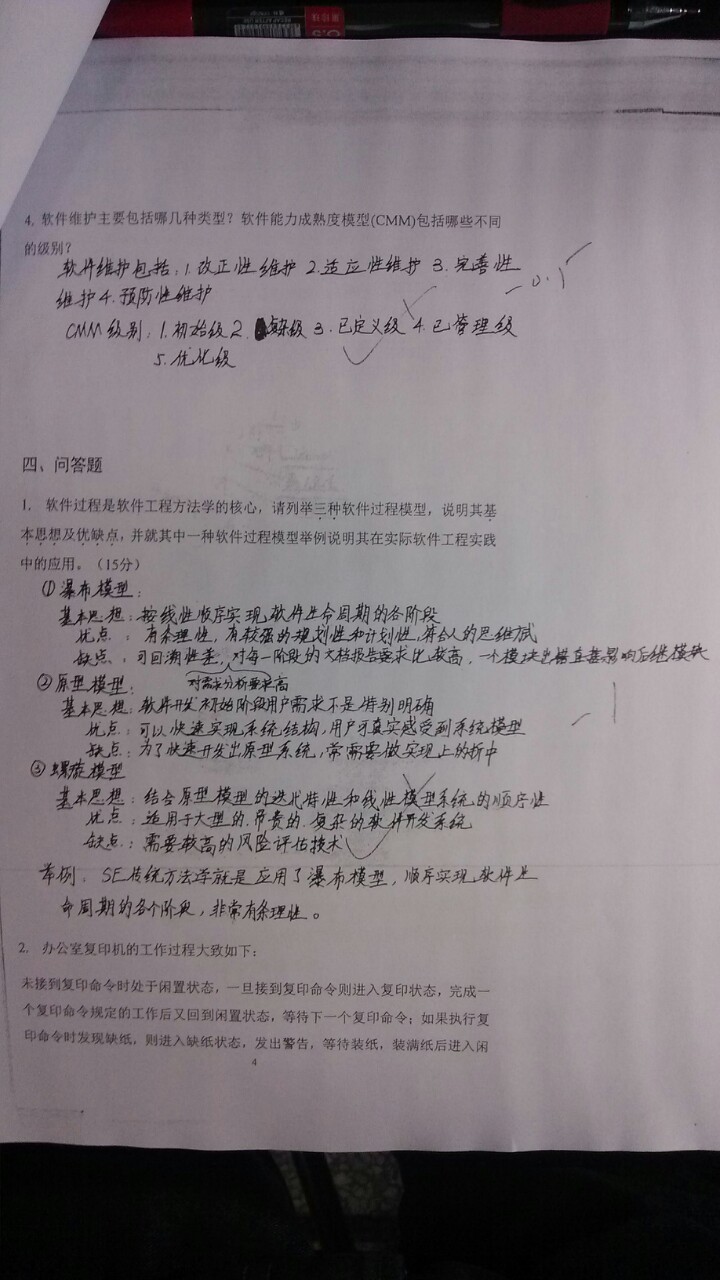 4. 软件维护主要包括哪几种类型？软件能力成熟度模型(CMM)包括哪些不同
的级别？
软件维护包括：1. 改正性维护 2. 适应性维护 3. 完善性
维护 4. 预防性维护
CMM级别：1. 初始级 2. 级 3. 已定义级 4. 已管理级
5. 优化级
四、问答题
1. 软件过程是软件工程方法学的核心，请列举三种软件过程模型，说明其基
本思想及优缺点，并就其中一种软件过程模型举例说明其在实际软件工程实践
中的应用。（15分）
①瀑布模型：
基本思想：按线性顺序实现软件生命周期的各阶段
优点：有条理性，有较强的规划性和计划性，符合人的思维方式
缺点：可回溯性差，对每一阶段的文档报告要求比较高，一个模块出错直接影响后继模块
对需求分析要求高
②原型模型：
基本思想：软件开发初始阶段用户需求不是特别明确
优点：可以快速实现系统结构，用户可真实感受到系统模型
缺点：为了快速开发出原型系统，常需要做实现上的折中
③螺旋模型
基本思想：结合原型模型的迭代特性和线性模型系统的顺序性
优点：适用于大型的、昂贵的、复杂的软件开发系统
缺点：需要较高的风险评估技术
举例：SE传统方法学就是应用了瀑布模型，顺序实现软件生
命周期的各个阶段，非常有条理性。
-1
2. 办公室复印机的工作过程大致如下：
未接到复印命令时处于闲置状态，一旦接到复印命令则进入复印状态，完成一
个复印命令规定的工作后又回到闲置状态，等待下一个复印命令；如果执行复
印命令时发现缺纸，则进入缺纸状态，发出警告，等待装纸，装满纸后进入闲
4